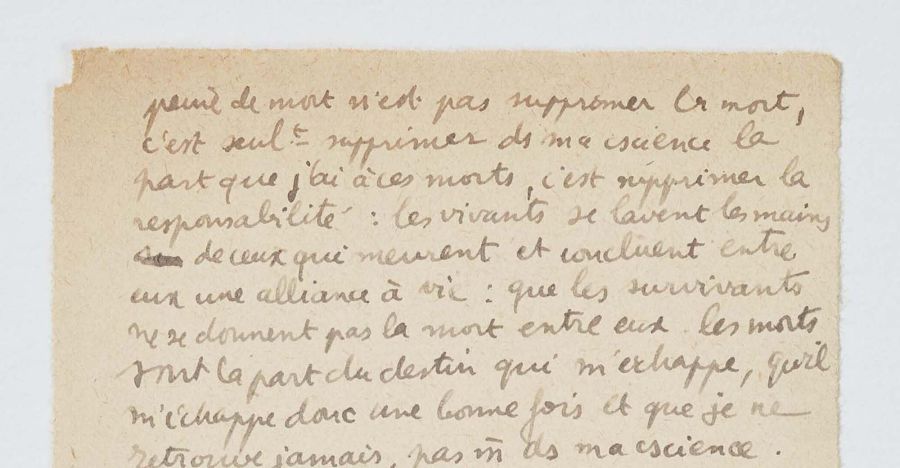 peine de mort n'est pas supprimer la mort,
c'est seult supprimer ds ma cscience la
part que j'ai à ces morts, c'est supprimer la
responsabilité : les vivants se lavent les mains
de ceux qui meurent et concluent entre
eux une alliance à vie : que les survivants
ne se donnent pas la mort entre eux. les morts
sont la part du destin qui m'échappe, qu'il
m'échappe donc une bonne fois et que je ne
retrouve jamais, pas m̄ ds ma cscience.